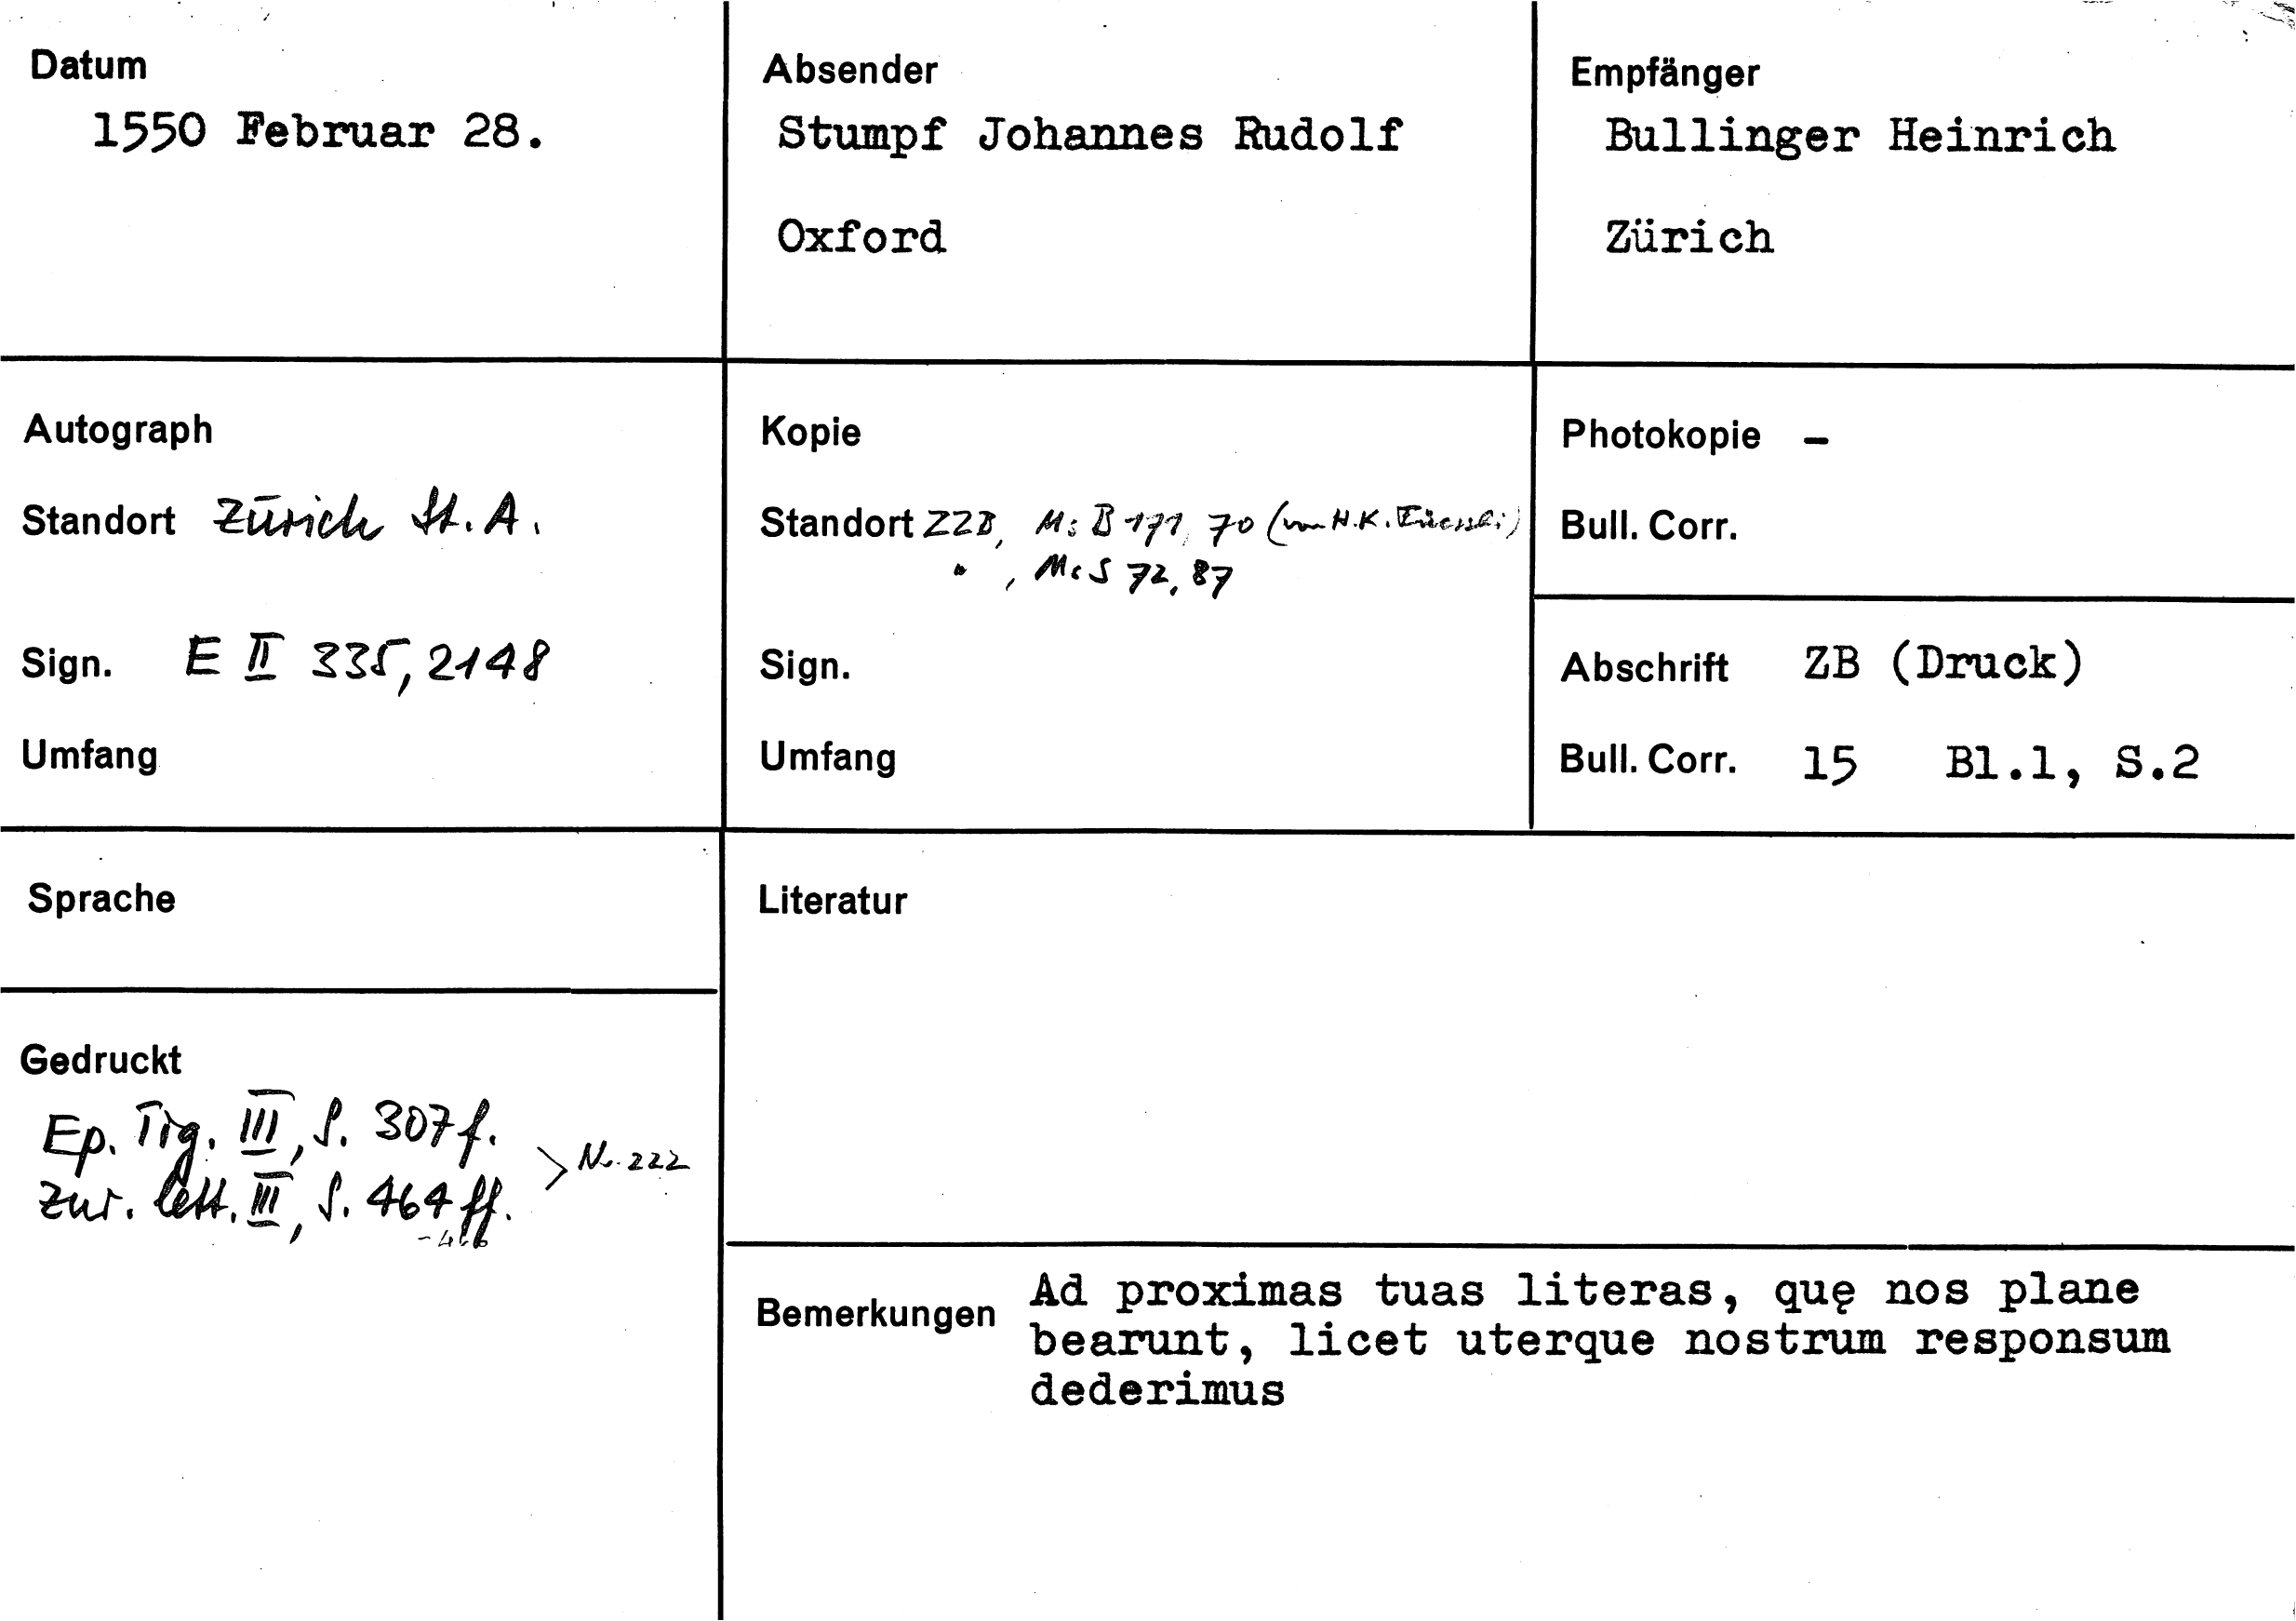 Datum
1550 Februar 28.
Absender
Stumpf Johannes Rudolf
Oxford
Empfänger
Bullinger Heinrich
Zürich
Autograph
Standort Zürich St. A.
Sign. E II 335, 2148
Umfang
Kopie
Standort ZZB, Ms B 171, 70 (von H.K. Füessli)
" , Ms S 72, 87
Sign.
Umfang
Photokopie –
Bull. Corr.
Abschrift ZB (Druck)
Bull. Corr. 15 Bl.1, S.2
Sprache
Gedruckt
Ep. Tig. III, S. 307 f.
Zur. lett. III, S. 464 ff.
-466
> Nr. 222
Literatur
Bemerkungen Ad proximas tuas literas, quę nos plane
bearunt, licet uterque nostrum responsum
dederimus